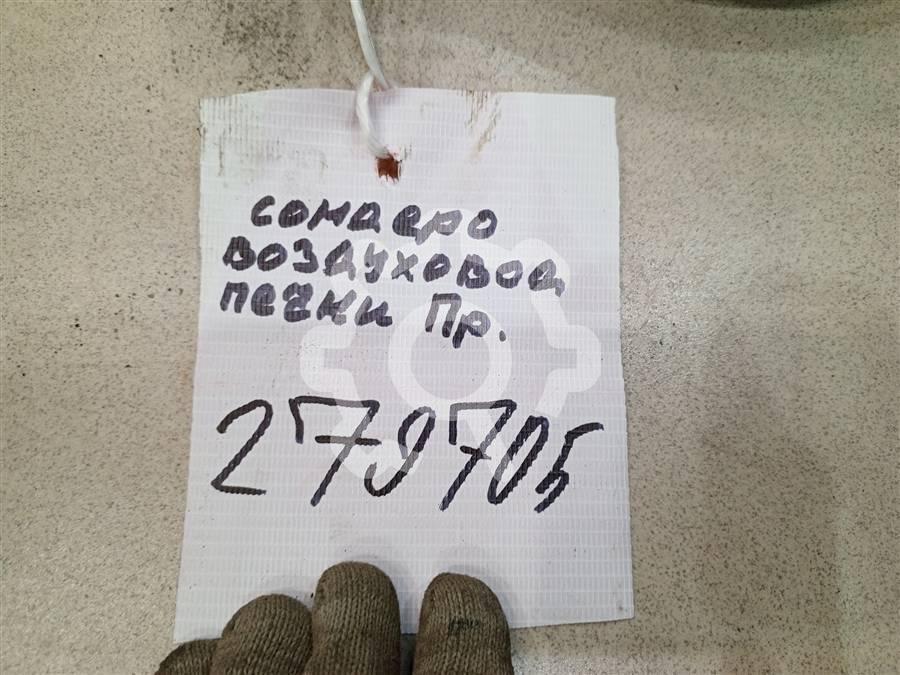 сондеро
воздуховод
печки Пр.
279705